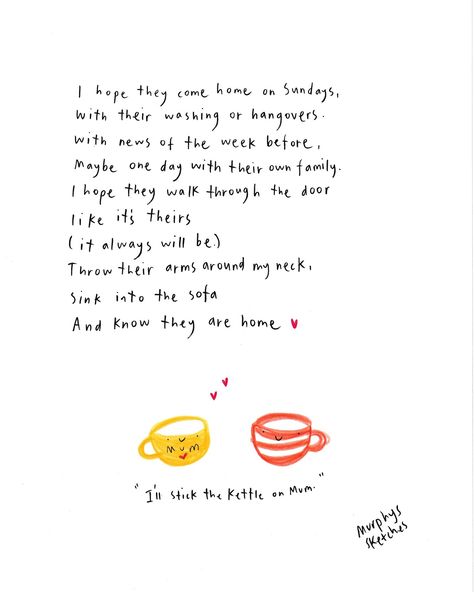 I hope they come home on Sundays,
With their washing or hangovers.
With news of the week before,
Maybe one day with their own family.
I hope they walk through the door
like it's theirs
(it always will be.)
Throw their arms around my neck,
Sink into the sofa
And know they are home
MUM
"I'll stick the kettle on Mum."
Murphys
sketches